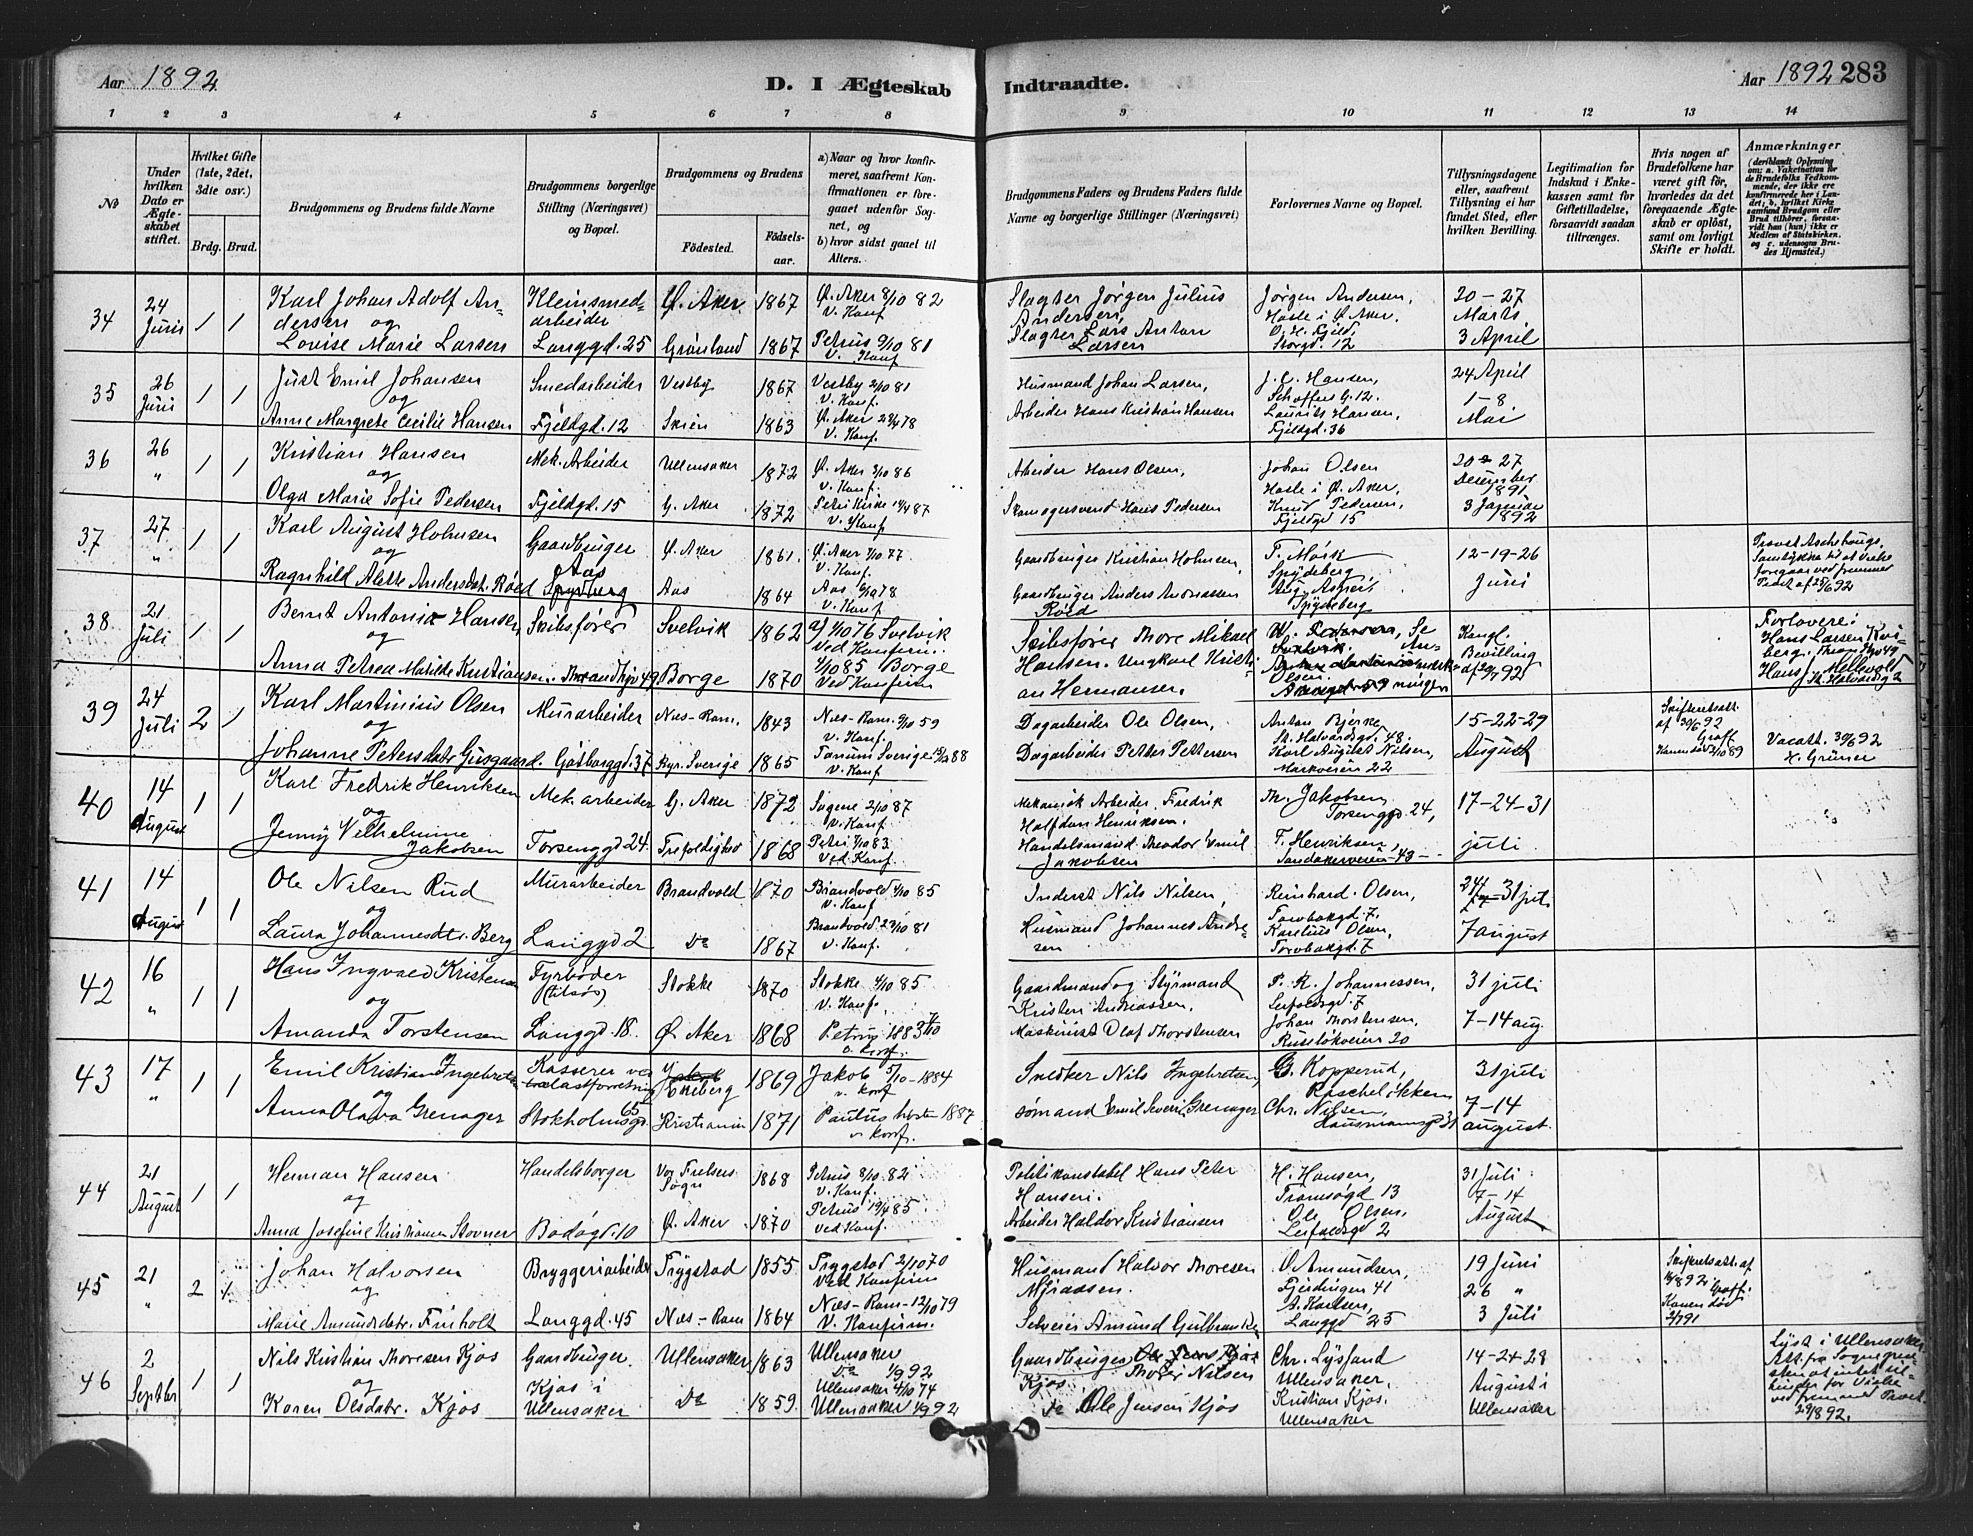 Aar 1892
D. I Ægteskab
Indtraadte.
Aar 1892 283
1 2 3 4 5 6 7 8 9 10 11 12 13 14
No
Under hvilken Dato er Ægteskabet stiftet.
Hvilket Gifte (1ste, 2det, 3die osv.)
Brdg. Brud.
Brudgommens og Brudens fulde Navne
Brudgommens borgerlige Stilling (Næringsvei) og Bopæl.
Brudgommens og Brudens
Fødested. Fødselsaar.
a) Naar og hvor konfirmeret, saafremt Konfirmationen er foregaaet udenfor Sognet, og
b) hvor sidst gaaet til Alters.
Brudgommens Faders og Brudens Faders fulde Navne og borgerlige Stillinger (Næringsvei)
Forlovernes Navne og Bopæl.
Tillysningsdagene eller, saafremt Tillysning ei har fundet Sted, efter hvilken Bevilling.
Legitimation for Indskud i Enkekassen samt for Giftetilladelse, forsaavidt saadan tiltrænges.
Hvis nogen af Brudefolkene har været gift før, hvorledes da det foregaaende Ægteskab er opløst, samt om lovligt Skifte er holdt.
Anmærkninger
34 24 Juni 1 1
Karl Johan Adolf Andersen og
Lovise Marie Larsen
Kleinsmedarbeider
Langgd. 25
Ø. Aker 1867 Ø. Aker 8/10 82 v. Konf
Grønland 1867 Petrus 9/10 81 v. Konf
Slagter Jørgen Julius Andersen,
Slagter Lars Anton Larsen
Jørgen Andersen, Hasle i Ø. Aker.
O. H. Fjeld, Storgd. 12
20 - 27 Marts
3 April
35 26 Juni 1 1
Just Emil Johansen
og
Anne Margrete Cecilie Hansen
Smedarbeider
Fjeldgd. 12
Vestby 1867 Vestby 2/10 81 v. Konf.
Skien 1863 Ø. Aker 28/4 78 v. Konf.
Husmand Johan Larsen,
Arbeider Hans Kristian Hansen
J. C. Hansen, Schoffers G. 12.
Laurits Hansen, Fjeldgd. 36
24 April
1 - 8 Mai
36 26 " 1 1
Kristian Hansen
og
Olga Marie Sofie Pedersen
Mek. Arbeider
Fjeldgd. 15
Ullensaker 1872 Ø. Aker 3/10 86 v. Konf.
G. Aker 1872 Petri Kirke 17/4 87 v. Konf.
Arbeider Hans Olsen,
Skomagersvend Hans Pedersen
Johan Olsen Hasle i Ø. Aker,
Knud Pedersen, Fjeldgd 15
20 - 27 December 1891
3 Januar 1892
37 27 " 1 1
Karl August Holmsen
og
Ragnhild Alette Andersdat. Røed
Gaardbruger
Aas
Ø. Aker 1861. Ø. Aker 7/10 77 v. Konf.
Aas 1864 Aas 6/10 78 v. Konf.
Gaardbruger Kristian Holmsen,
Gaardbruger Anders Andreassen Røed
T. Mørk Spydeberg
Spydeberg
12 - 19 - 26 Juni
Provst Aschehougs Samtykke til at Vielse foregaar ved fremmed Præst af 25/6 92
38 21 Juli 1 1
Bernt Antonius Hansen
og
Anna Petrea Matilde Kristiansen
Skibsfører
Svelvik 1862 a) 1/10 76 Svelvik Ved Konfirm.
Borge 1870 1/10 85 Borge Ved Konfirm
Skibsfører Thore Mikael Hansen. Ungkarl Kristian Hermansen.
Kongl. Bevilling af 20/7 92
Forlovere: Hans Larsen
Hans J. Mellevold St. Halvardsg 2
39 24 Juli 2 1
Karl Martinius Olsen
og
Johanne Petersdatr Gusgaard.
Murarbeider
Gøtborggd. 37
Næs-Rom. 1843 Næs-Rom. 3/10 59 v. Konf.
Sverige 1865 Tanum Sverige 88 v. Konf
Dagarbeider Ole Olsen,
Dagarbeider Petter Pettersen
Anton Bjerke, St. Halvardsgd. 48.
Karl August Nilsen, Markveien 22
15 - 22 - 29 August
Skifteretsatt. af 30/6 92 Graff
Vacatt. 30/6 92 H. Grüner
40 14 August 1 1
Karl Fredrik Henriksen
og
Jenny Vilhelmine Jakobsen
Mek. arbeider
Torsenggd 24.
G. Aker 1872 Sagene 2/10 87 v. Konf
Trefoldighed 1868 Petri 7/10 83 Ved Konf.
Mekanisk Arbeider Fredrik Halfdan Henriksen.
Handelsmand Theodor Emil Jakobsen
Th. Jakobsen Torsenggd 24,
F. Henriksen, Sandakerveien 43
17 - 24 - 31 juli
41 14 August 1 1
Ole Nilsen Rud
og
Laura Johannesdtr. Berg
Murarbeider
Langgd 2
Brandvold 1870 Brandvold 4/10 85 v. Konf
Do 1867 Brandvold 23/10 81 v. Konf.
Inderst Nils Nilsen,
Husmand Johannes Andresen
Reinhard Olsen, Torvbakgd. 7.
Karelius Olsen, Torvbakgd. 7
31 juli
7 august
42 16 " 1 1
Hans Ingvald Kristensen
og
Amanda Torstensen
Fyrbøder (tilsøs)
Langgd. 18.
Stokke 1870 Stokke 4/10 85 v. Konf.
Ø. Aker 1868 Petrus 1883 7/10 v. konf.
Gaardmand og Styrmand Kristen Andreassen,
Maskinist Olaf Thorstensen
P. R. Johannessen, Leifoldsgd 7
Johan Thorstensen, Ruseløkveien 20
31 juli
7 - 14 aug.
43 17 " 1 1
Emil Kristian Ingebretsen
og
Anna Olava Grenager
Kasserer ved balastforretning
Stokholmsgd. 65
Ekeberg 1869 Jakob 5/10 - 1884 v. konf
Kristiania 1871 Paulus høsten 1887 v. konf.
Snedker Nils Ingebretsen,
sømand Emil Severin Grenager
G. Kopperud,
Chr. Nilsen, Hausmannsgd 31
31 juli
7 - 14 august
44 21 August 1 1
Herman Hansen
og
Anna Josefine Kristiansen Stovner
Handelsborger
Bodøgd. 10
Vor Frelsers Sogn 1868 Petrus 8/10 82 v. Konf.
Ø. Aker 1870 Petrus 19/4 85 ved Konf.
Politikonstabel Hans Peter Hansen.
Arbeider Haldor Kristiansen
H. Hansen, Tromsøgd 13
Ole Olsen, Leifoldsgd 2
31 Juli
7 - 14 August
45 21 " 2 1
Johan Halvorsen
og
Marie Amundsdatr. Finholt
Bryggeriarbeider
Langgd. 45
Trygstad 1855 Trygstad 2/10 70 Ved Konfirm
Næs-Rom 1864 Næs-Rom- 12/10 79 v. Konfirm.
Husmand Halvor Thoresen
Selveier Amund Gulbrandsen
O. Amundsen, Fjerdingen 41
A. Karlsen, Langgd 25
19 Juni
26 "
3 Juli
Skifteretsatt. af 16/8 92 Graff.
Konen død 2/7 91
46 2 Septbr 1 1
Nils Kristian Thoresen Kjos
og
Karen Olsdatr. Kjos
Gaardbruger.
Kjos i Ullensaker
Ullensaker 1863 Ullensaker Do 1/9 92
Do 1859 Ullensaker 4/10 74 Ullensaker 1/9 92
Gaardbruger Thore Nilsen Kjos
do Ole Jensen Kjos
Chr. Lysfand Ullensaker,
Kristian Kjos. Ullensaker
14 - 24 - 28 August i Ullensaker
Lyst i Ullensaker. Att. fra Sognepresten at intet til hinder for Vielse ved fremmed Præst 29/8 92.